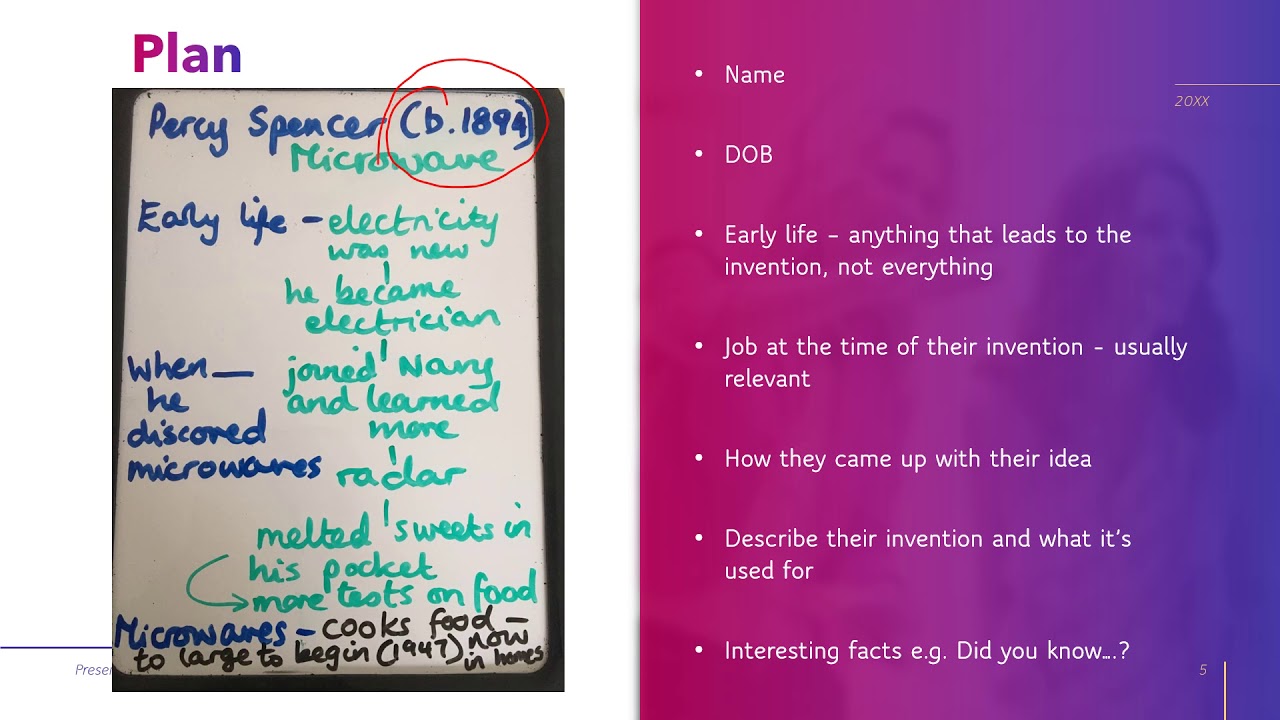 Plan
Percy Spencer (b. 1894)
Microwave
Early life - electricity
was new
he became
electrician
When — joined Navy
he and learned
discored more
microwaves radar
melted sweets in
his pocket
more tests on food
Microwaves - cooks food -
to large to begin (1947) now
in homes
Presen
• Name
20XX
• DOB
• Early life – anything that leads to the
invention, not everything
• Job at the time of their invention - usually
relevant
• How they came up with their idea
• Describe their invention and what it's
used for
• Interesting facts e.g. Did you know….?
5